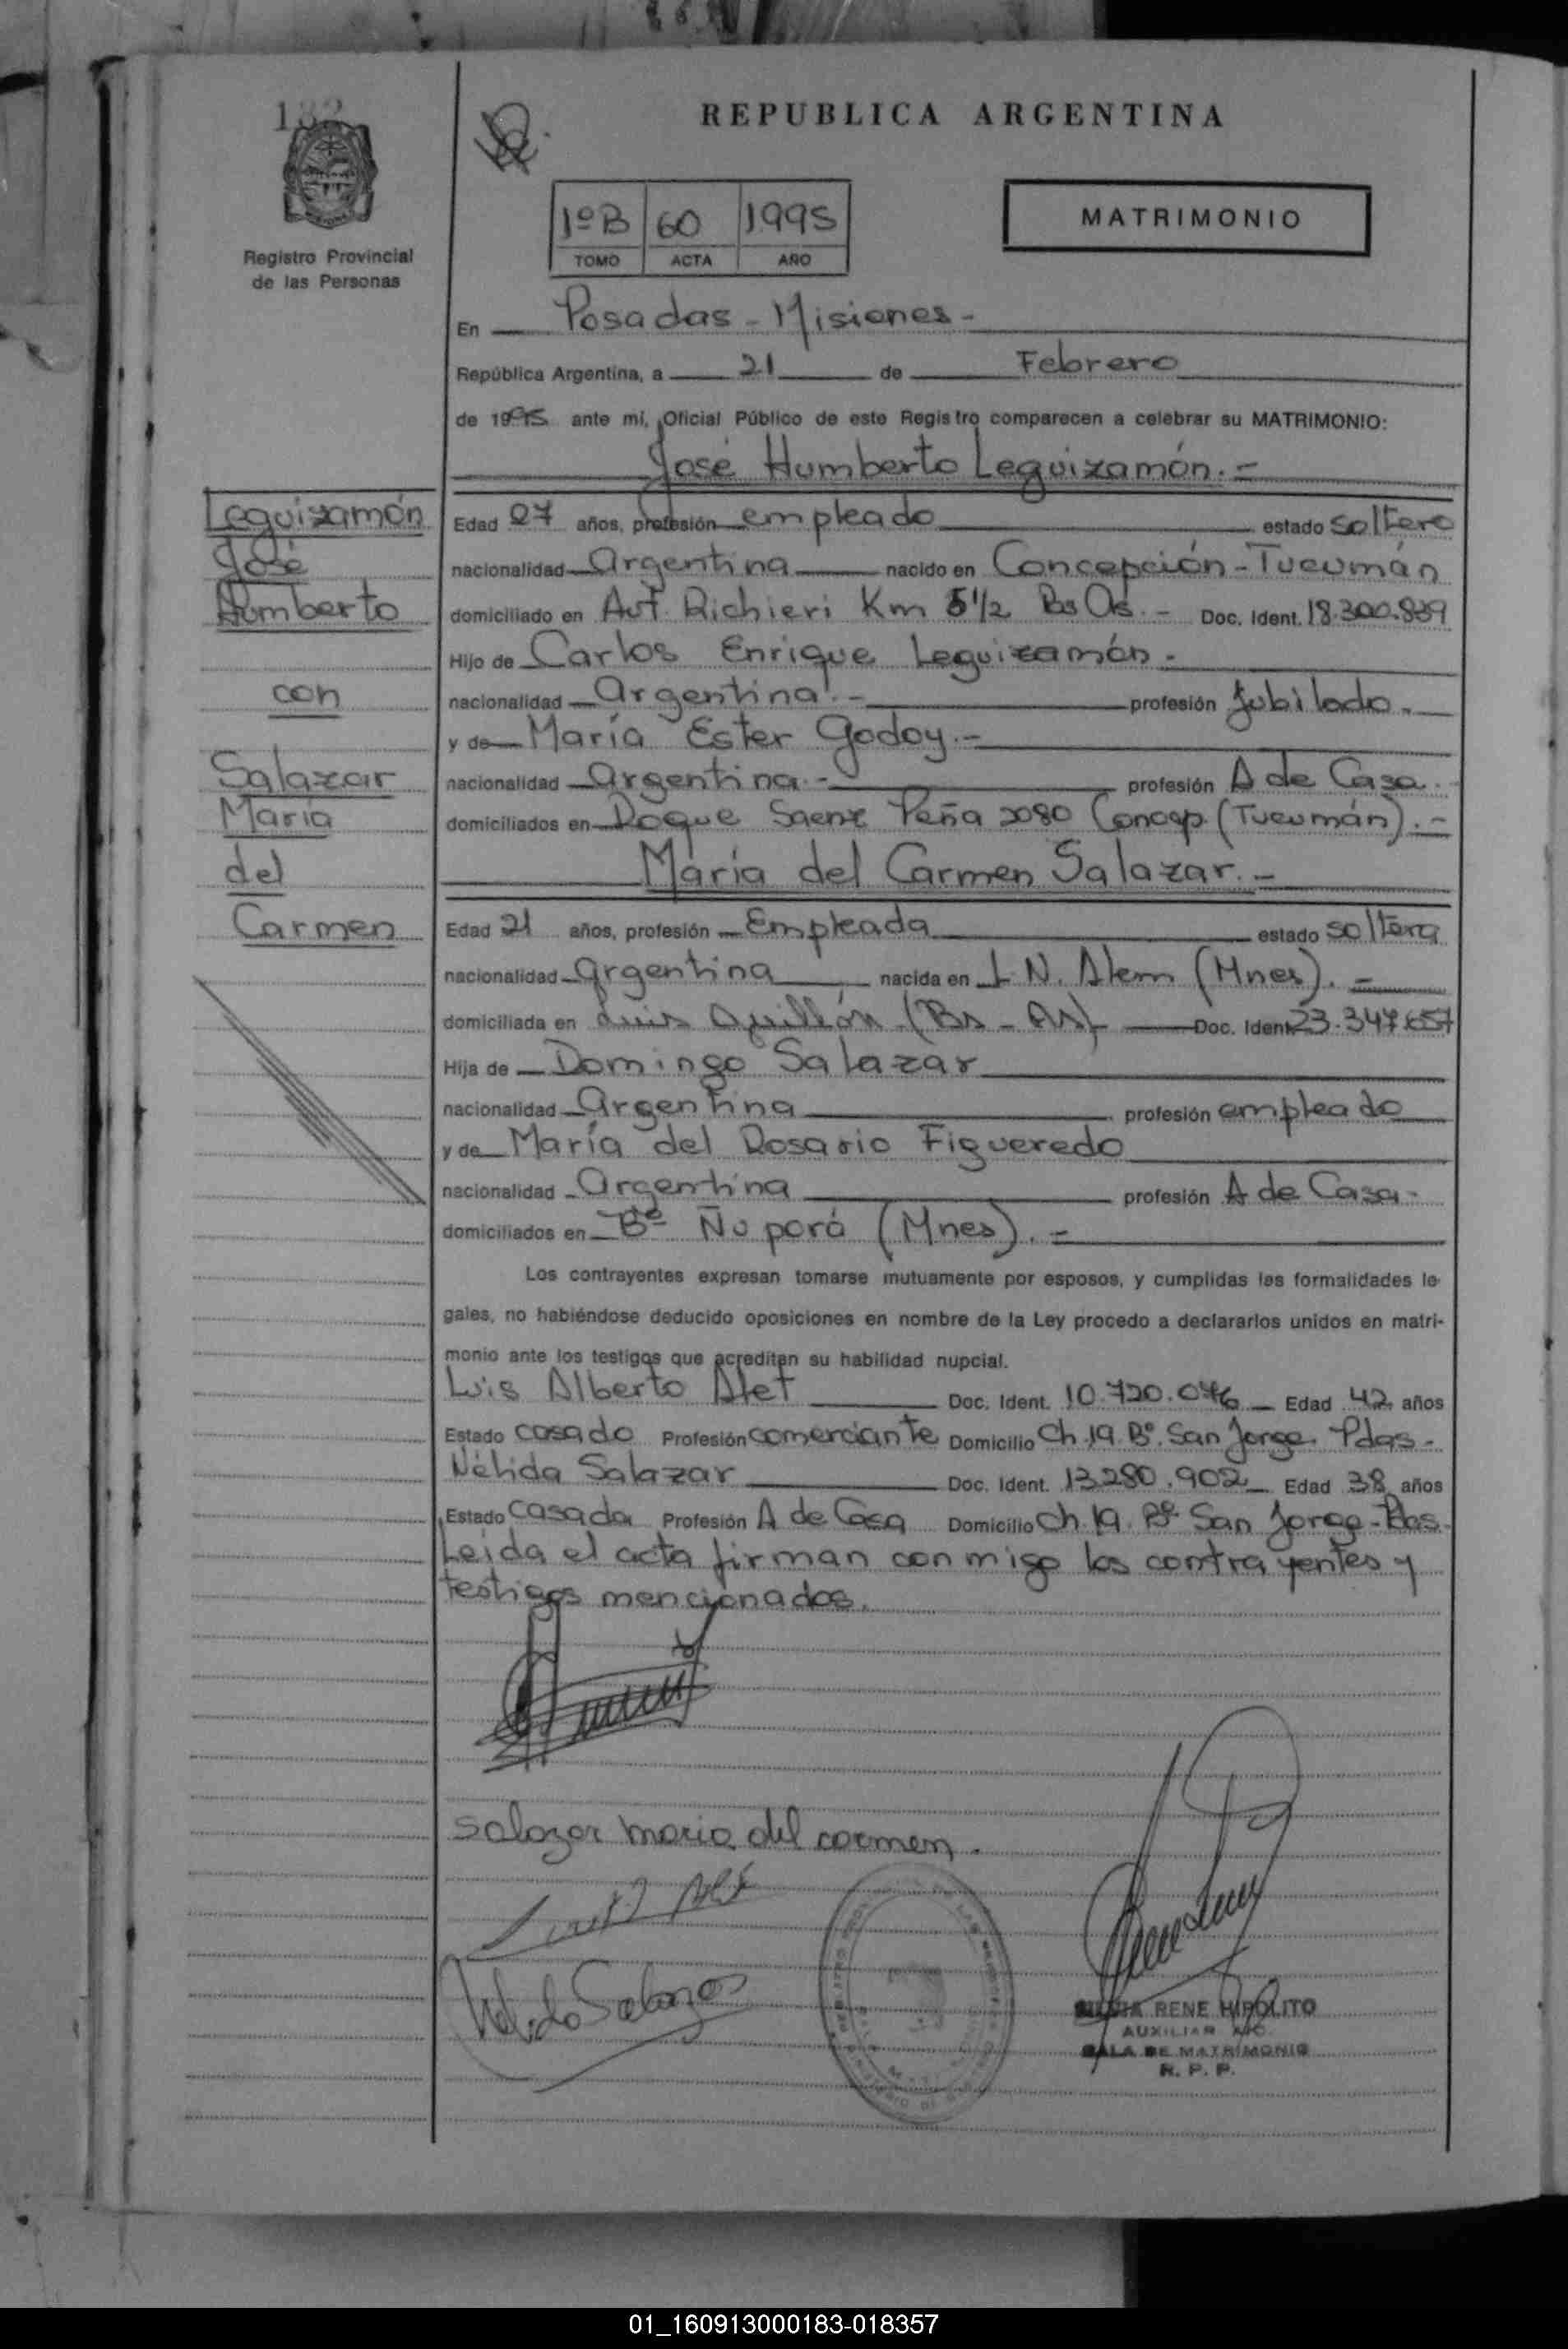 REPUBLICA ARGENTINA
Registro Provincial
de las Personas
1ºB 60 1995
TOMO ACTA AÑO
MATRIMONIO
En Posadas - Misiones -
República Argentina, a 21 de Febrero
de 1995 ante mi, Oficial Público de este Registro comparecen a celebrar su MATRIMONIO:
José Humberto Leguizamón. -
Leguizamón
José
Humberto
con
Salazar
María
del
Carmen
Edad 27 años, profesión empleado estado soltero
nacionalidad Argentina nacido en Concepción - Tucumán
domiciliado en Aut. Richieri Km 5 1/2 Bs As. - Doc. Ident. 18.300.839
Hijo de Carlos Enrique Leguizamón -
nacionalidad Argentina. - profesión Jubilado -
y de María Ester Godoy. -
nacionalidad Argentina - profesión A de Casa.
domiciliados en Roque Saenz Peña 2080 Concep. (Tucumán). -
María del Carmen Salazar. -
Edad 21 años, profesión Empleada estado soltera
nacionalidad Argentina nacida en L N. Alem (Mnes). -
domiciliada en Luis Guillón (Bs - As) Doc. Ident. 23.347.657
Hija de Domingo Salazar
nacionalidad Argentina profesión empleado
y de María del Rosario Figueredo
nacionalidad Argentina profesión A de Casa -
domiciliados en Bº Ñu porá (Mnes). =
Los contrayentes expresan tomarse mutuamente por esposos, y cumplidas las formalidades le-
gales, no habiéndose deducido oposiciones en nombre de la Ley procedo a declararlos unidos en matri-
monio ante los testigos que acreditan su habilidad nupcial.
Luis Alberto Alet Doc. Ident. 10.720.076 Edad 42 años
Estado casado Profesión comerciante Domicilio Ch. 19. Bº. San Jorge. Pdas -
Nélida Salazar Doc. Ident. 13.280.902 Edad 38 años
Estado casada Profesión A de Casa Domicilio Ch. 19. Bº San Jorge - Pdas -
Leída el acta firman con migo los contrayentes y
testigos mencionados.
Salazar maria del carmen.
Nélida Salazar
RENE HIPOLITO
AUXILIAR
SALA DE MATRIMONIO
R. P. P.
01_160913000183-018357